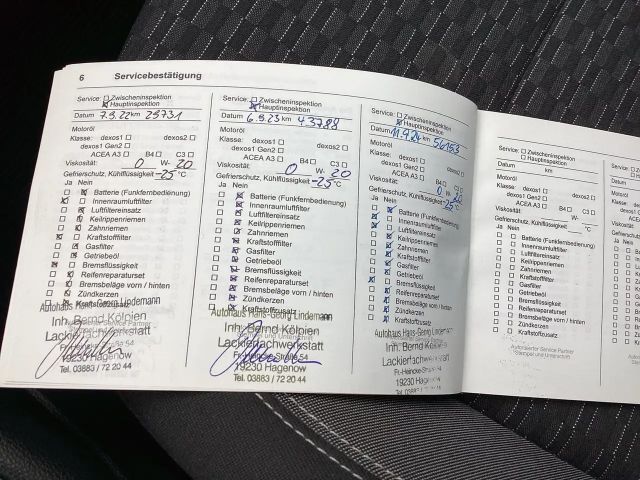 6 Servicebestätigung
Service: Zwischeninspektion
Hauptinspektion
Datum 7.9.22 km 29731
Motoröl
Klasse: dexos1 dexos2
dexos1 Gen2
ACEA A3 B4 C3
Viskosität: 0 W- 20
Gefrierschutz, Kühlflüssigkeit -25 °C
Ja Nein
Batterie (Funkfernbedienung)
Innenraumluftfilter
Luftfiltereinsatz
Keilrippenriemen
Zahnriemen
Kraftstofffilter
Gasfilter
Getriebeöl
Bremsflüssigkeit
Reifenreparaturset
Bremsbeläge vorn / hinten
Zündkerzen
Kraftstoffzusatz
Autohaus Hans-Georg Lindemann
Inh. Bernd Kölpien
Lackierfachwerkstatt
Fr-Heincke-Straße 54
19230 Hagenow
Tel. 03883 / 72 20 44
Service: Zwischeninspektion
Hauptinspektion
Datum 6.9.23 km 43788
Motoröl
Klasse: dexos1 dexos2
dexos1 Gen2
ACEA A3 B4 C3
Viskosität: 0 W- 20
Gefrierschutz, Kühlflüssigkeit -25 °C
Ja Nein
Batterie (Funkfernbedienung)
Innenraumluftfilter
Luftfiltereinsatz
Keilrippenriemen
Zahnriemen
Kraftstofffilter
Gasfilter
Getriebeöl
Bremsflüssigkeit
Reifenreparaturset
Bremsbeläge vorn / hinten
Zündkerzen
Kraftstoffzusatz
Autohaus Hans-Georg Lindemann
Inh. Bernd Kölpien
Lackierfachwerkstatt
Fr-Heincke-Straße 54
19230 Hagenow
Tel. 03883 / 72 20 44
Service: Zwischeninspektion
Hauptinspektion
Datum 11.9.24 km 56153
Motoröl
Klasse: dexos1 dexos2
dexos1 Gen2
ACEA A3 B4 C3
Viskosität: 0 W-
Gefrierschutz, Kühlflüssigkeit -25 °C
Ja Nein
Batterie (Funkfernbedienung)
Innenraumluftfilter
Luftfiltereinsatz
Keilrippenriemen
Zahnriemen
Kraftstofffilter
Gasfilter
Getriebeöl
Bremsflüssigkeit
Reifenreparaturset
Bremsbeläge vorn / hinten
Zündkerzen
Kraftstoffzusatz
Autohaus Hans-Georg Lindemann
Inh. Bernd Kölpien
Lackierfachwerkstatt
Fr-Heincke-Straße
19230 Hagenow
Tel. 03883 / 72 20 44
Service: Zwischeninspektion
Hauptinspektion
Datum km
Motoröl
Klasse: dexos1 dexos2
dexos1 Gen2
ACEA A3 B4 C3
Viskosität: W-
Gefrierschutz, Kühlflüssigkeit °C
Ja Nein
Batterie (Funkfernbedienung)
Innenraumluftfilter
Luftfiltereinsatz
Keilrippenriemen
Zahnriemen
Kraftstofffilter
Gasfilter
Getriebeöl
Bremsflüssigkeit
Reifenreparaturset
Bremsbeläge vorn / hinten
Zündkerzen
Kraftstoffzusatz
Autorisierter Service Partner
Stempel und Unterschrift
Service:
Datum
Motoröl
Klasse:
Viskosität:
Ja Nein